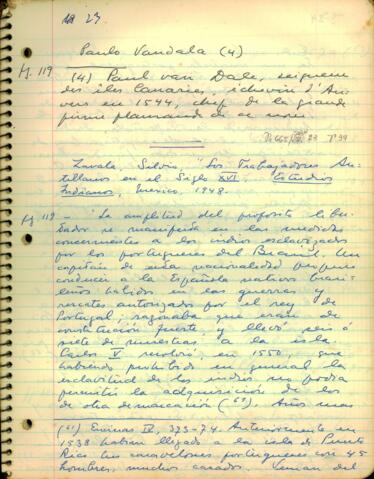 23
Paulo Vandala (4)
fg. 119
(4) Paul van Dale, seigneur
des iles Canaries, échevin d'An-
vers en 1544, chef de la grande
firme flamande de ce nom
23 P. 99
Zavala, Silvio, "Los Trabajadores An-
tillanos en el Siglo XVI. Estudios
Indianos, Mexico, 1948.
fg 119 - La amplitud del proposito liber-
tador se manifiesta en las medidas
concernientes a los indios esclavizados
por los portugueses del Brasil. Un
capitán de esta nacionalidad propuso
conducir a la Española nativos brasi-
leños habidos en las guerras y
rescates autorizados por el rey de
Portugal; razonaba que eran de
constitución fuerte, y llevó seis ó
siete de muestras a la isla.
Carlos V resolvió, en 1550, que
habiendo prohibido en general la
esclavitud de los indios no podia
permitir la adquisición de los
de otra demarcación (69). Años mas
(69) Encinas IV, 373-74. Anteriormente en
1538 habian llegado a la isla de Puerto
Rico tres caravelones portugueses con 45
hombres, muchos casados. Venian del